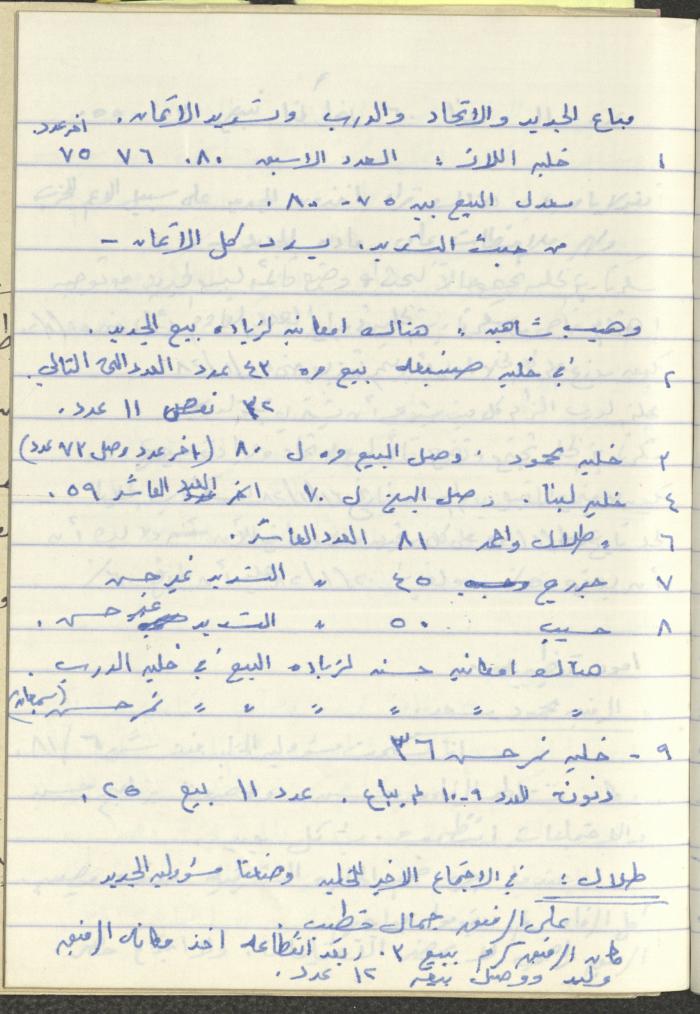 مباع الجديد والاتحاد والدرب وتسديد الاثمان. اخر عدد
١ خليه اللاز : العدد الاسبق ٨٠. ٧٦ ٧٥
معدل البيع بين ٧٥ - ٨٠.
من حيث التسديد. يسدد كل الاثمان -
وهيب شاهين : هنالك امكانيه لزياده بيع الجديد.
٢ في خليه بيع من ٤٣ عدد العدد التالي
٣٢ نقص ١١ عدد.
٣ خليه محمود. وصل البيع من ل ٨٠ (اخر عدد وصل ٧٣ عدد)
٤ خليه لينا. وصل البيع ل ٧٠ اخر العدد العاشر ٥٩.
٦ " طلال واحمد ٨١ العدد العاشر.
٧ جورج ٤٥ " التسديد غير حسن
٨ حسيب ٥٠ " التسديد غير حسن.
هنالك امكانيه حسنه لزياده البيع في خليه الدرب.
" " " " " " نمر حسن (سمعان)
٩ - خليه نمر حسن ٣٦
العدد ٩-١٠ لم يباع. عدد ١١ بيع ٢٥.
طلال : في الاجتماع الاخير للخليه وضعنا مسؤوليه الجديد
على الرفيق جمال خطيب
كان الرفيق كرم يبيع ٣٠ وبعد انقطاعه اخذ مكانه الرفيق
وليد ووصل بيعه ١٢ عدد.